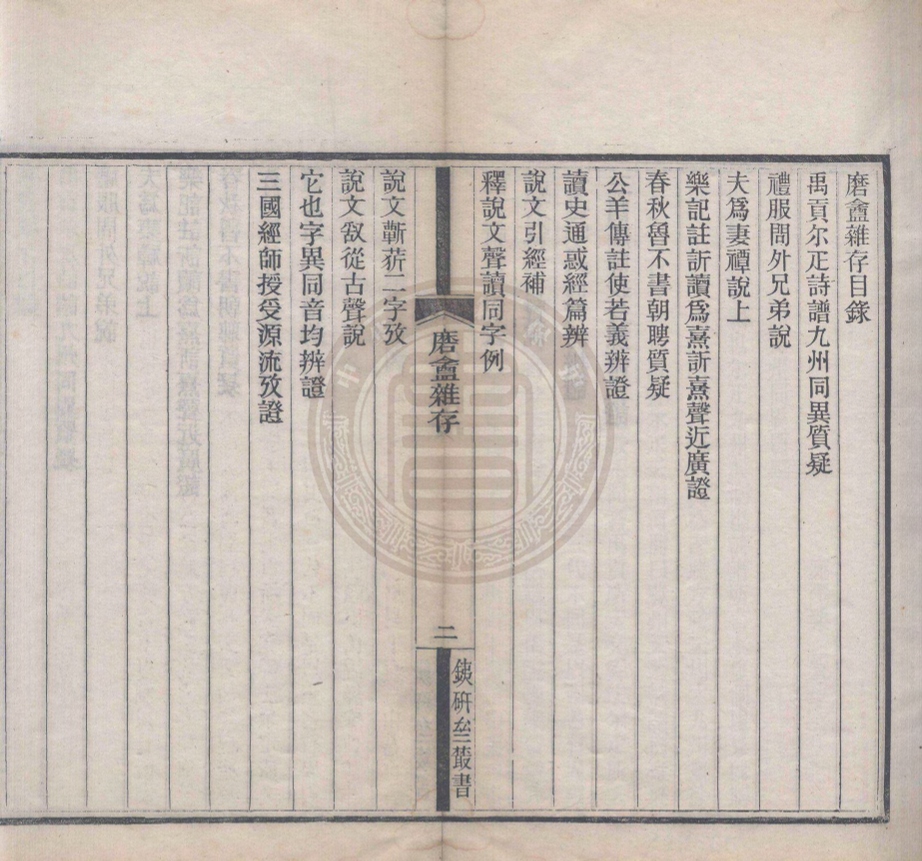 磨盦雜存目錄
禹貢尔疋詩譜九州同異質疑
禮服問外兄弟說
夫爲妻禫說上
樂記註訢讀爲熹訢熹聲近廣證
春秋魯不書朝聘質疑
公羊傳註使若義辨證
讀史通惑經篇辨
說文引經補
釋說文聲讀同字例
磨盦雜存
二
鐵研齋叢書
說文蘄菥二字攷
說文敜從古聲說
它也字異同音均辨證
三國經師授受源流攷證